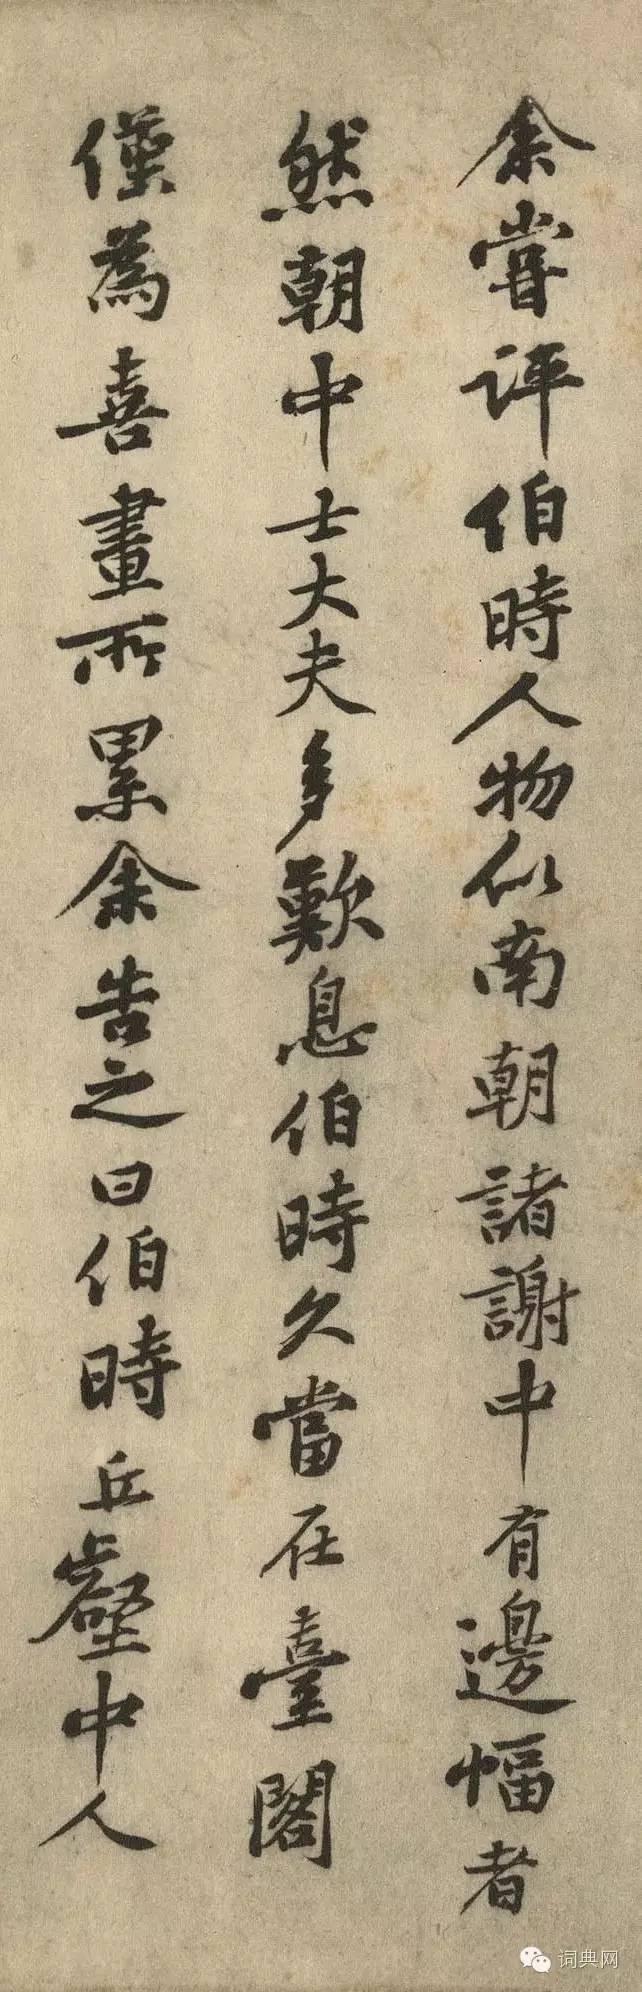 余嘗評伯時人物似南朝諸謝中有邊幅者
然朝中士大夫多歎息伯時久當在臺閣
僅為喜畫所累余告之曰伯時丘壑中人
词典网